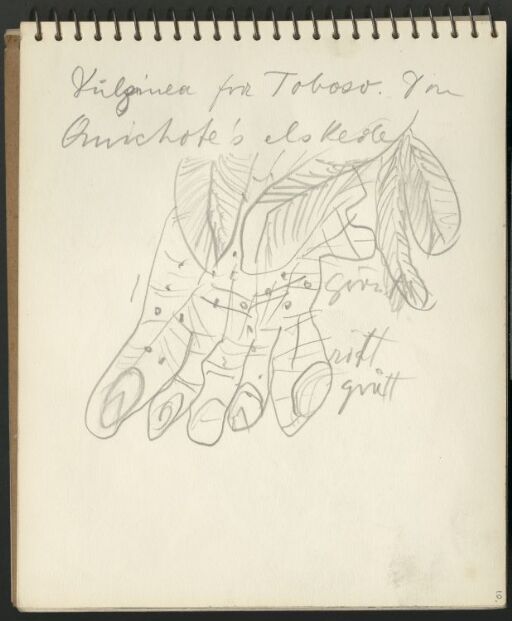 Dulzinea fra Toboso. Don
Quichote's elskede
hvitt
grått